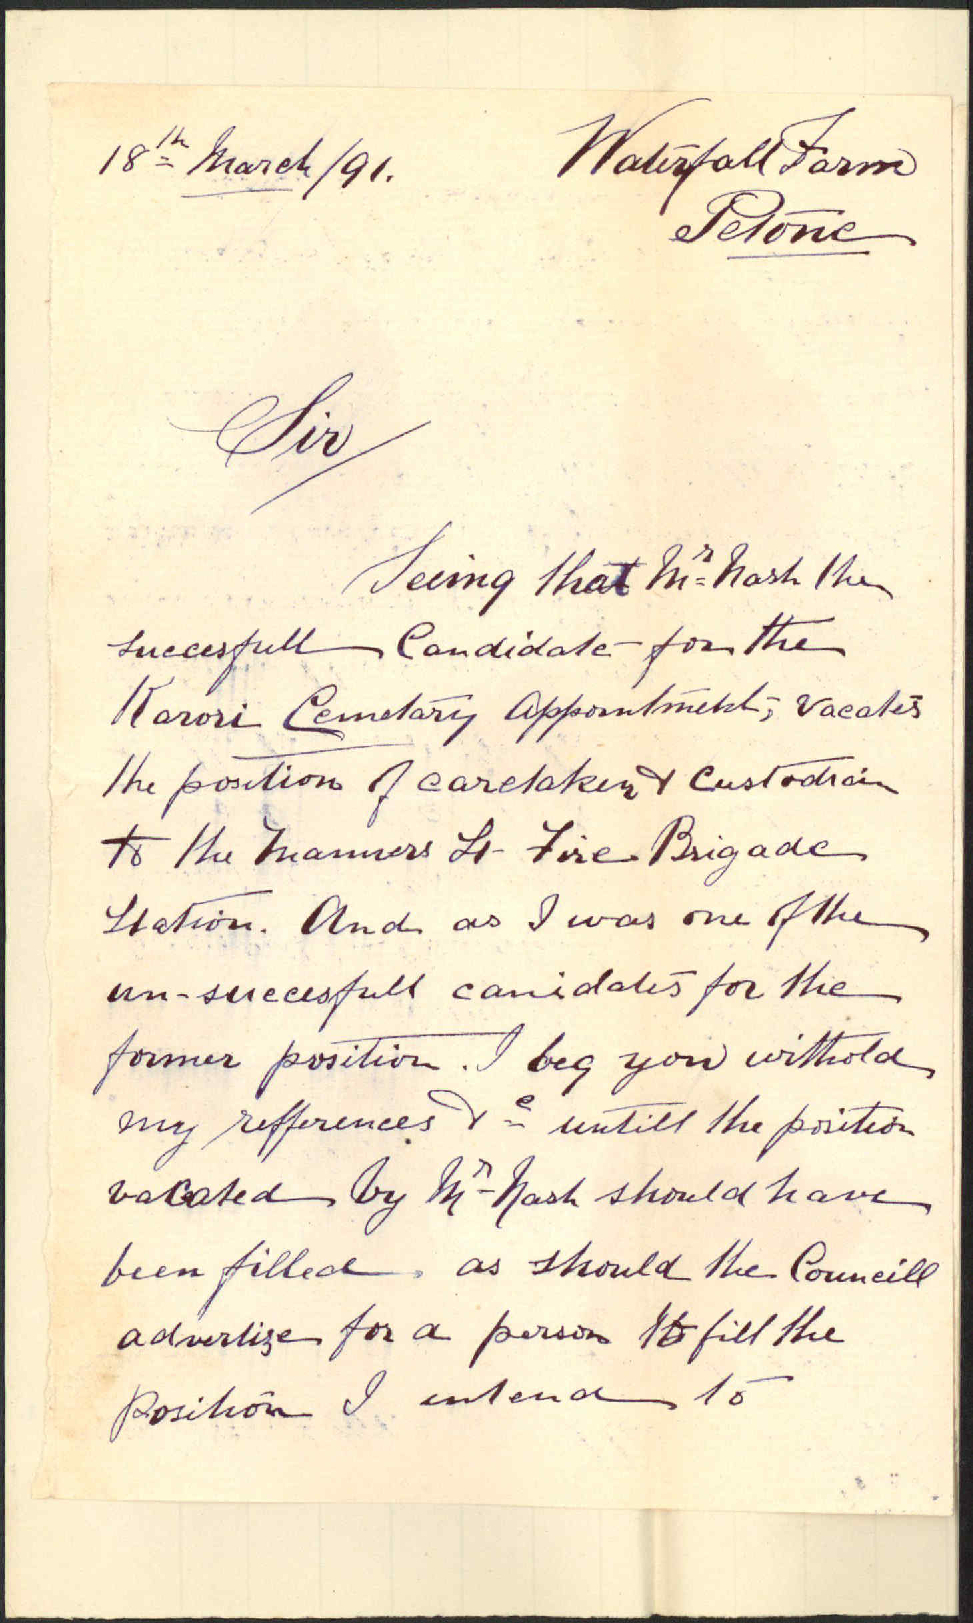 18th March/91.
Waterfall Farm
Petone
Sir
Seeing that Mr Nash the
succesfull Candidate for the
Karori Cemetary Appointment, vacates
the position of caretaker & Custodian
to the Manners St Fire Brigade
Station. And as I was one of the
un-succesfull canidates for the
former position. I beg you withold
my refferences &c untill the position
vacated by Mr Nash should have
been filled. as should the Councill
advertize for a person to fill the
position I intend to